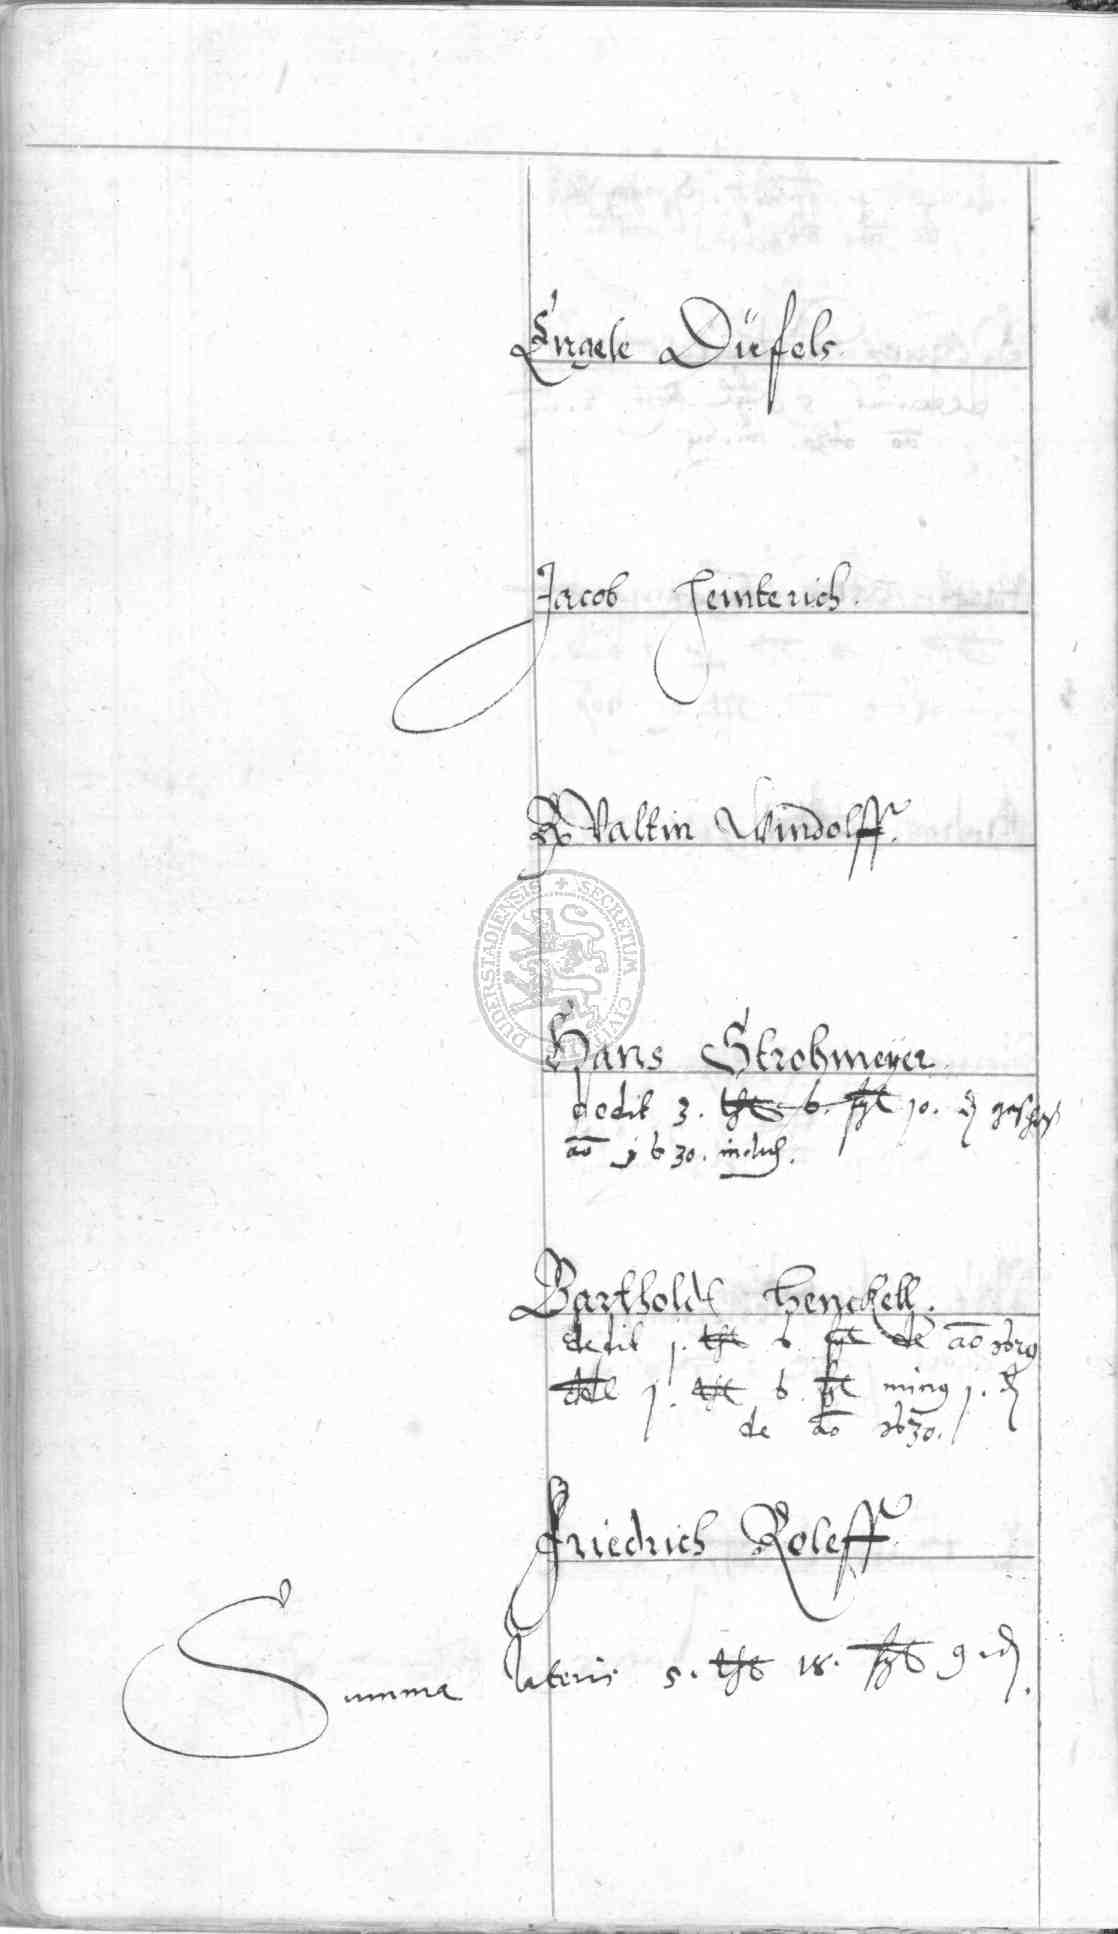 Engele Düfels.
Jacob Heinterich.
H Valtin Windolff.
DUDERSTADIENSIS + SECRETUM CIVIT
Hans Strohmeyer
dedit 3. thl 6. ßl 10. ₰
ao 1630. inclus.
Barthold Henckell.
dedit 1. thl 6. ßl de ao 1629
dedit 1. thl 6 ßl minus 1. ₰
de ao 1630.
Friedrich Roleff
Summa lateris 5. thl 18. ßl 9 ₰.